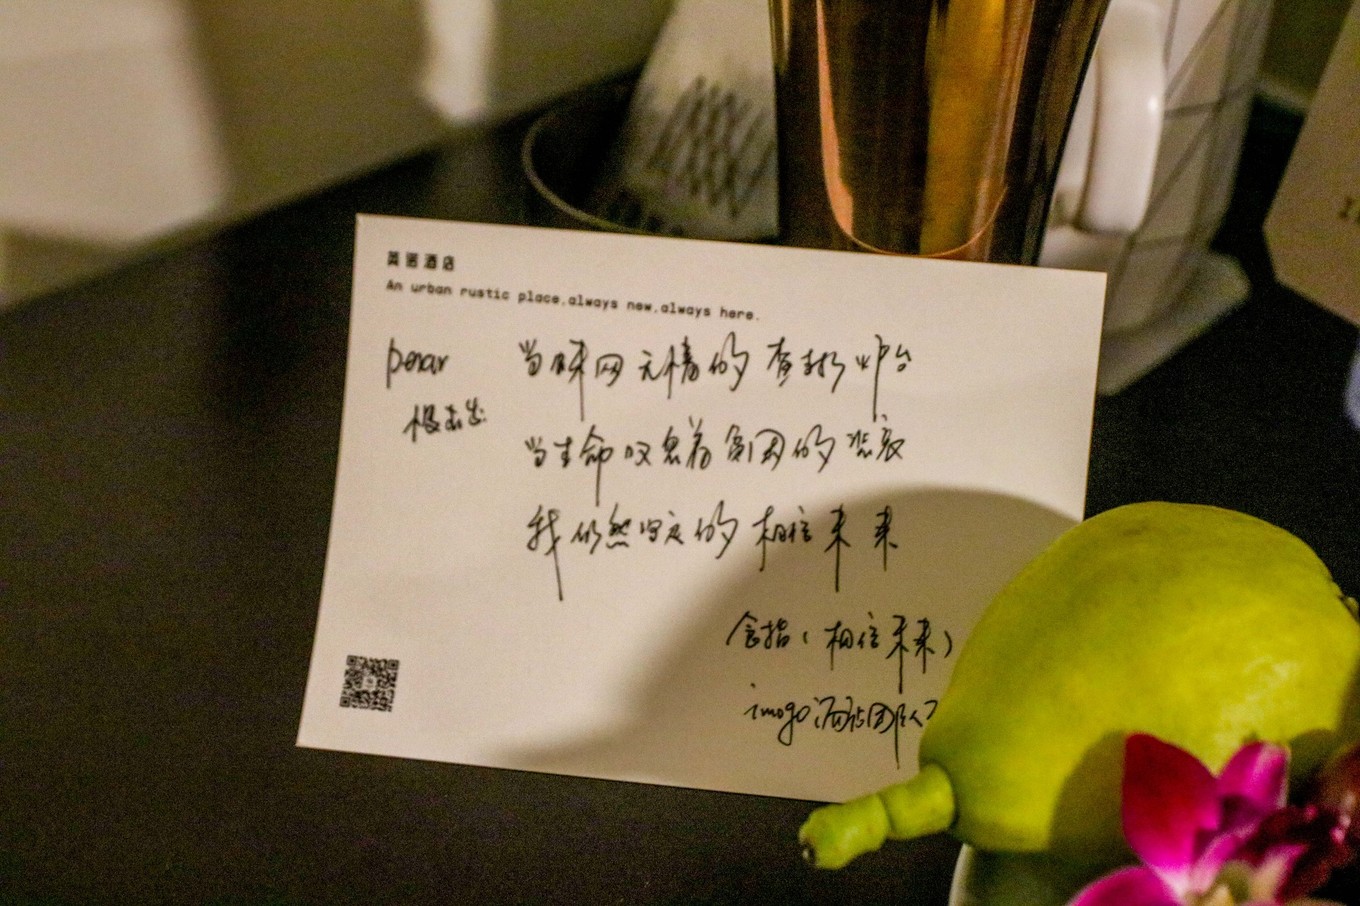 酒店
An urban rustic place,always new,always here.
Dear
当蛛网无情的查封炉台
当生命叹息着贫困的悲哀
我仍然坚定的相信未来
食指《相信未来》
imogo酒店团队